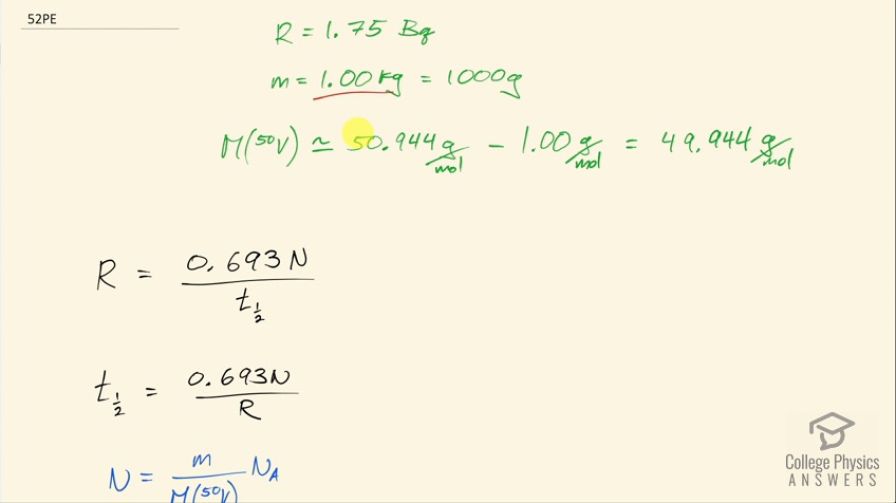 52PE
R = 1.75 Bq
m = 1.00 kg = 1000g
M(⁵⁰V) ≃ 50.944 g/mol − 1.00 g/mol = 49.944 g/mol
R = 0.693 N / t½
t½ = 0.693N / R
N = m / M(⁵⁰V) N_A
College Physics
ANSWERS